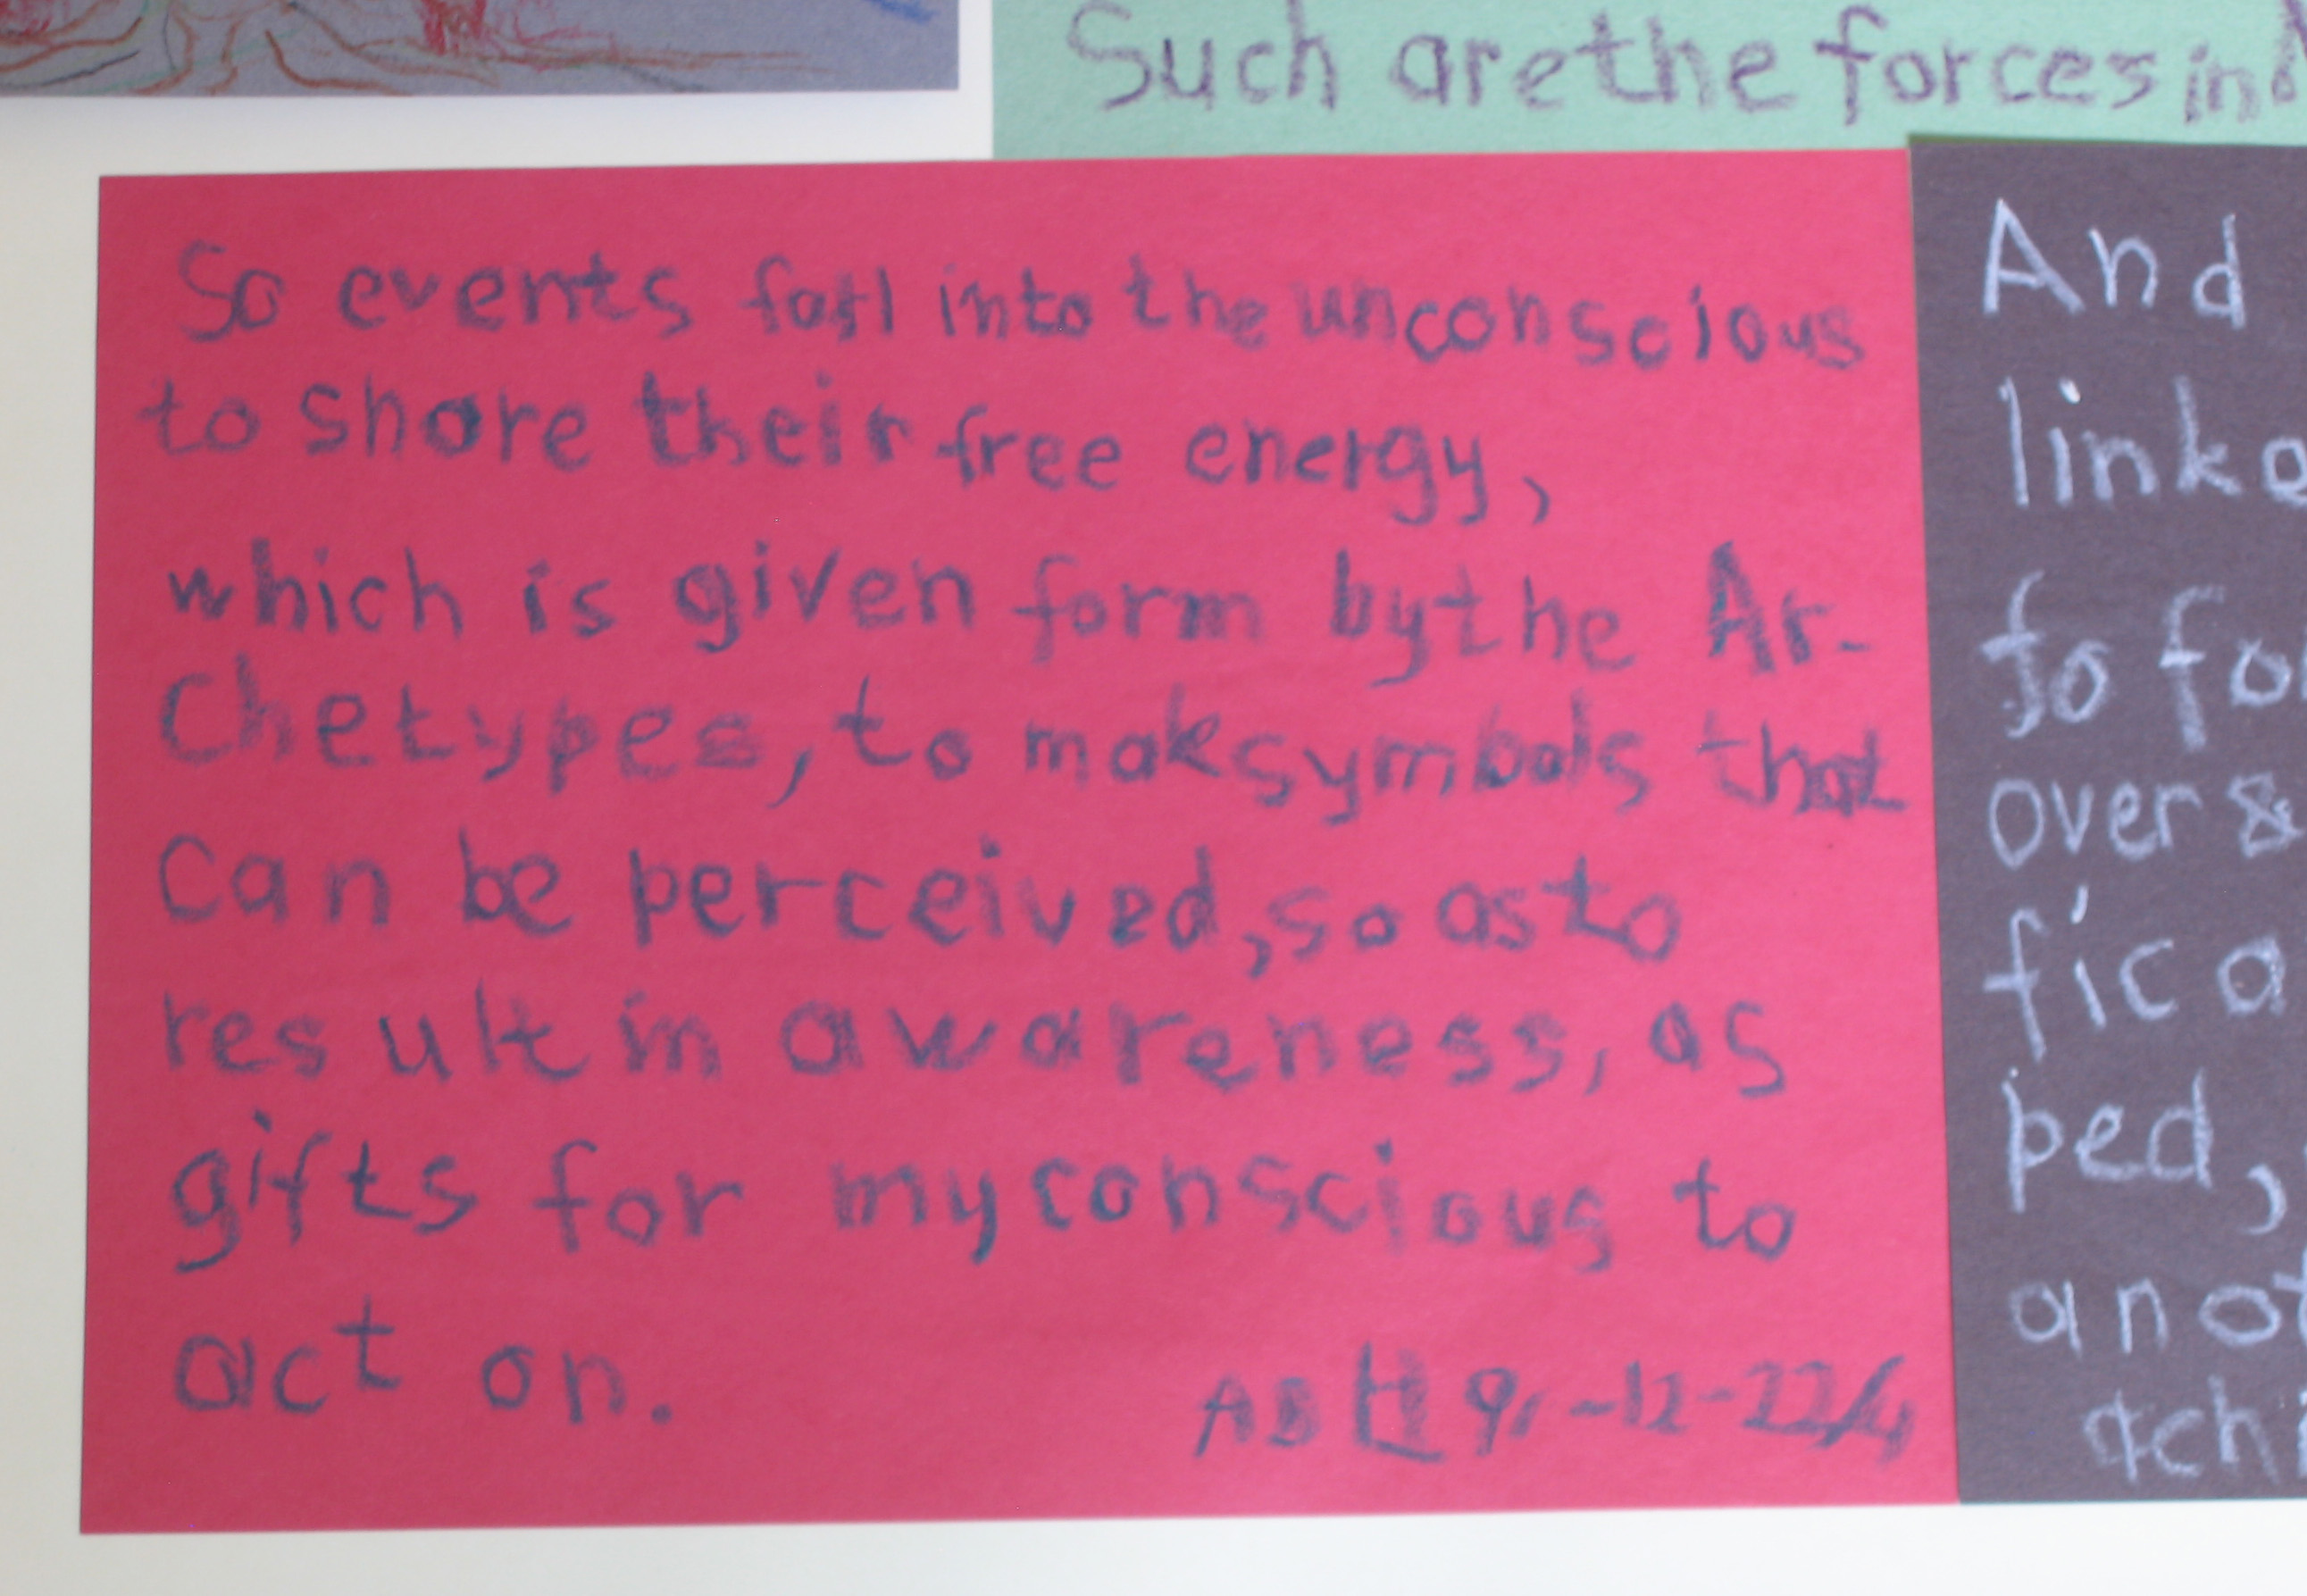 Such are the forces in
So events fall into the unconscious
to share their free energy,
which is given form by the Ar-
chetypes, to mak symbols that
can be perceived, so as to
result in awareness, as
gifts for my conscious to
act on.
And
linke
to for
over &
fica
ped,
anot
&chi